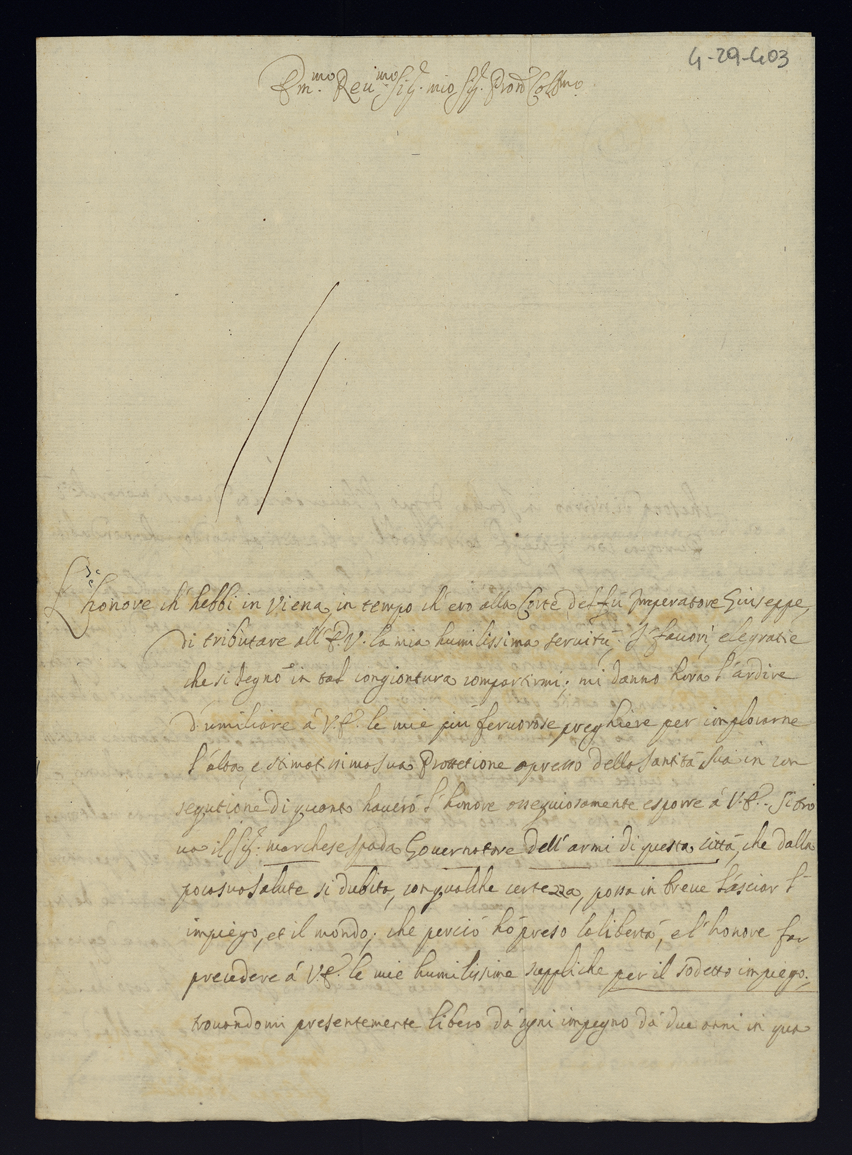 4-29-403
Em.mo Reu.mo Sig.r mio Sig.r Pron.e Coll.mo
L'honore ch'hebbi in Viena, in tempo ch'ero alla Corte del fù Imperatore Giuseppe,
di tributare all'E.V. la mia humilissima seruitù, e i fauori, e le gratie
che si degnò in tal congiontura compartirmi; mi danno hora l'ardire
d'umiliare à V.E. le mie più feruorose preghiere per implorarne
l'alta, e stimatissima sua Protettione apresso della Santità Sua in con
segutione di quanto hauerò l'honore ossequiosamente esporre à V.E. Si tro
ua il Sig.r Marchese Spada Gouernatore dell'armi di questa città, che dalla
poca sua salute si dubita, con qualche certezza, possa in breue lasciar l'
impiego, et il mondo; che perciò hò preso la libertà, e l'honore far
precedere à V.E. le mie humilissime suppliche per il sodetto impiego,
trouandomi presentemente libero da ogni impegno da due anni in qua